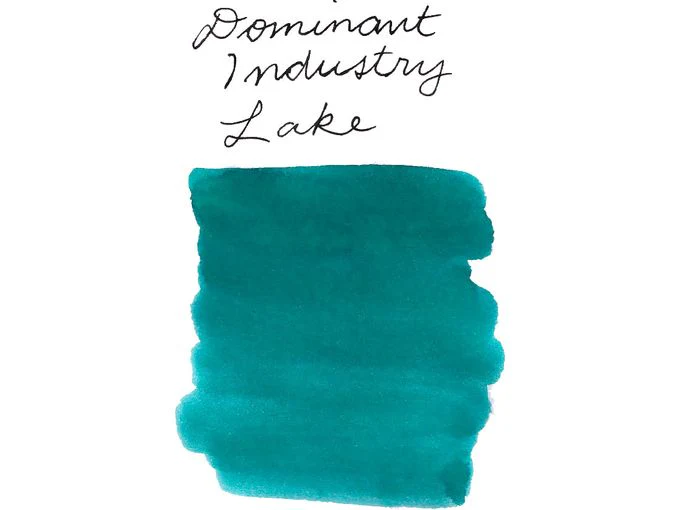 Dominant
Industry
Lake